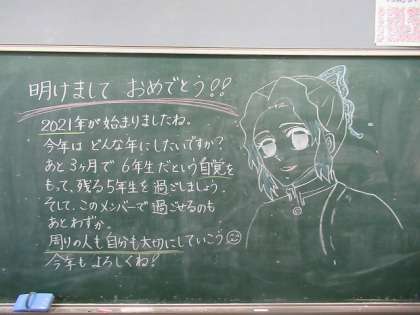 明けまして おめでとう!!
2021年が始まりましたね。
今年は どんな年にしたいですか?
あと3ヶ月で 6年生だという自覚を
もって、残る5年生を 過ごしましょう。
そして、このメンバーで過ごせるのも
あとわずか。
周りの人も自分も大切にしていこう
今年も よろしくね!